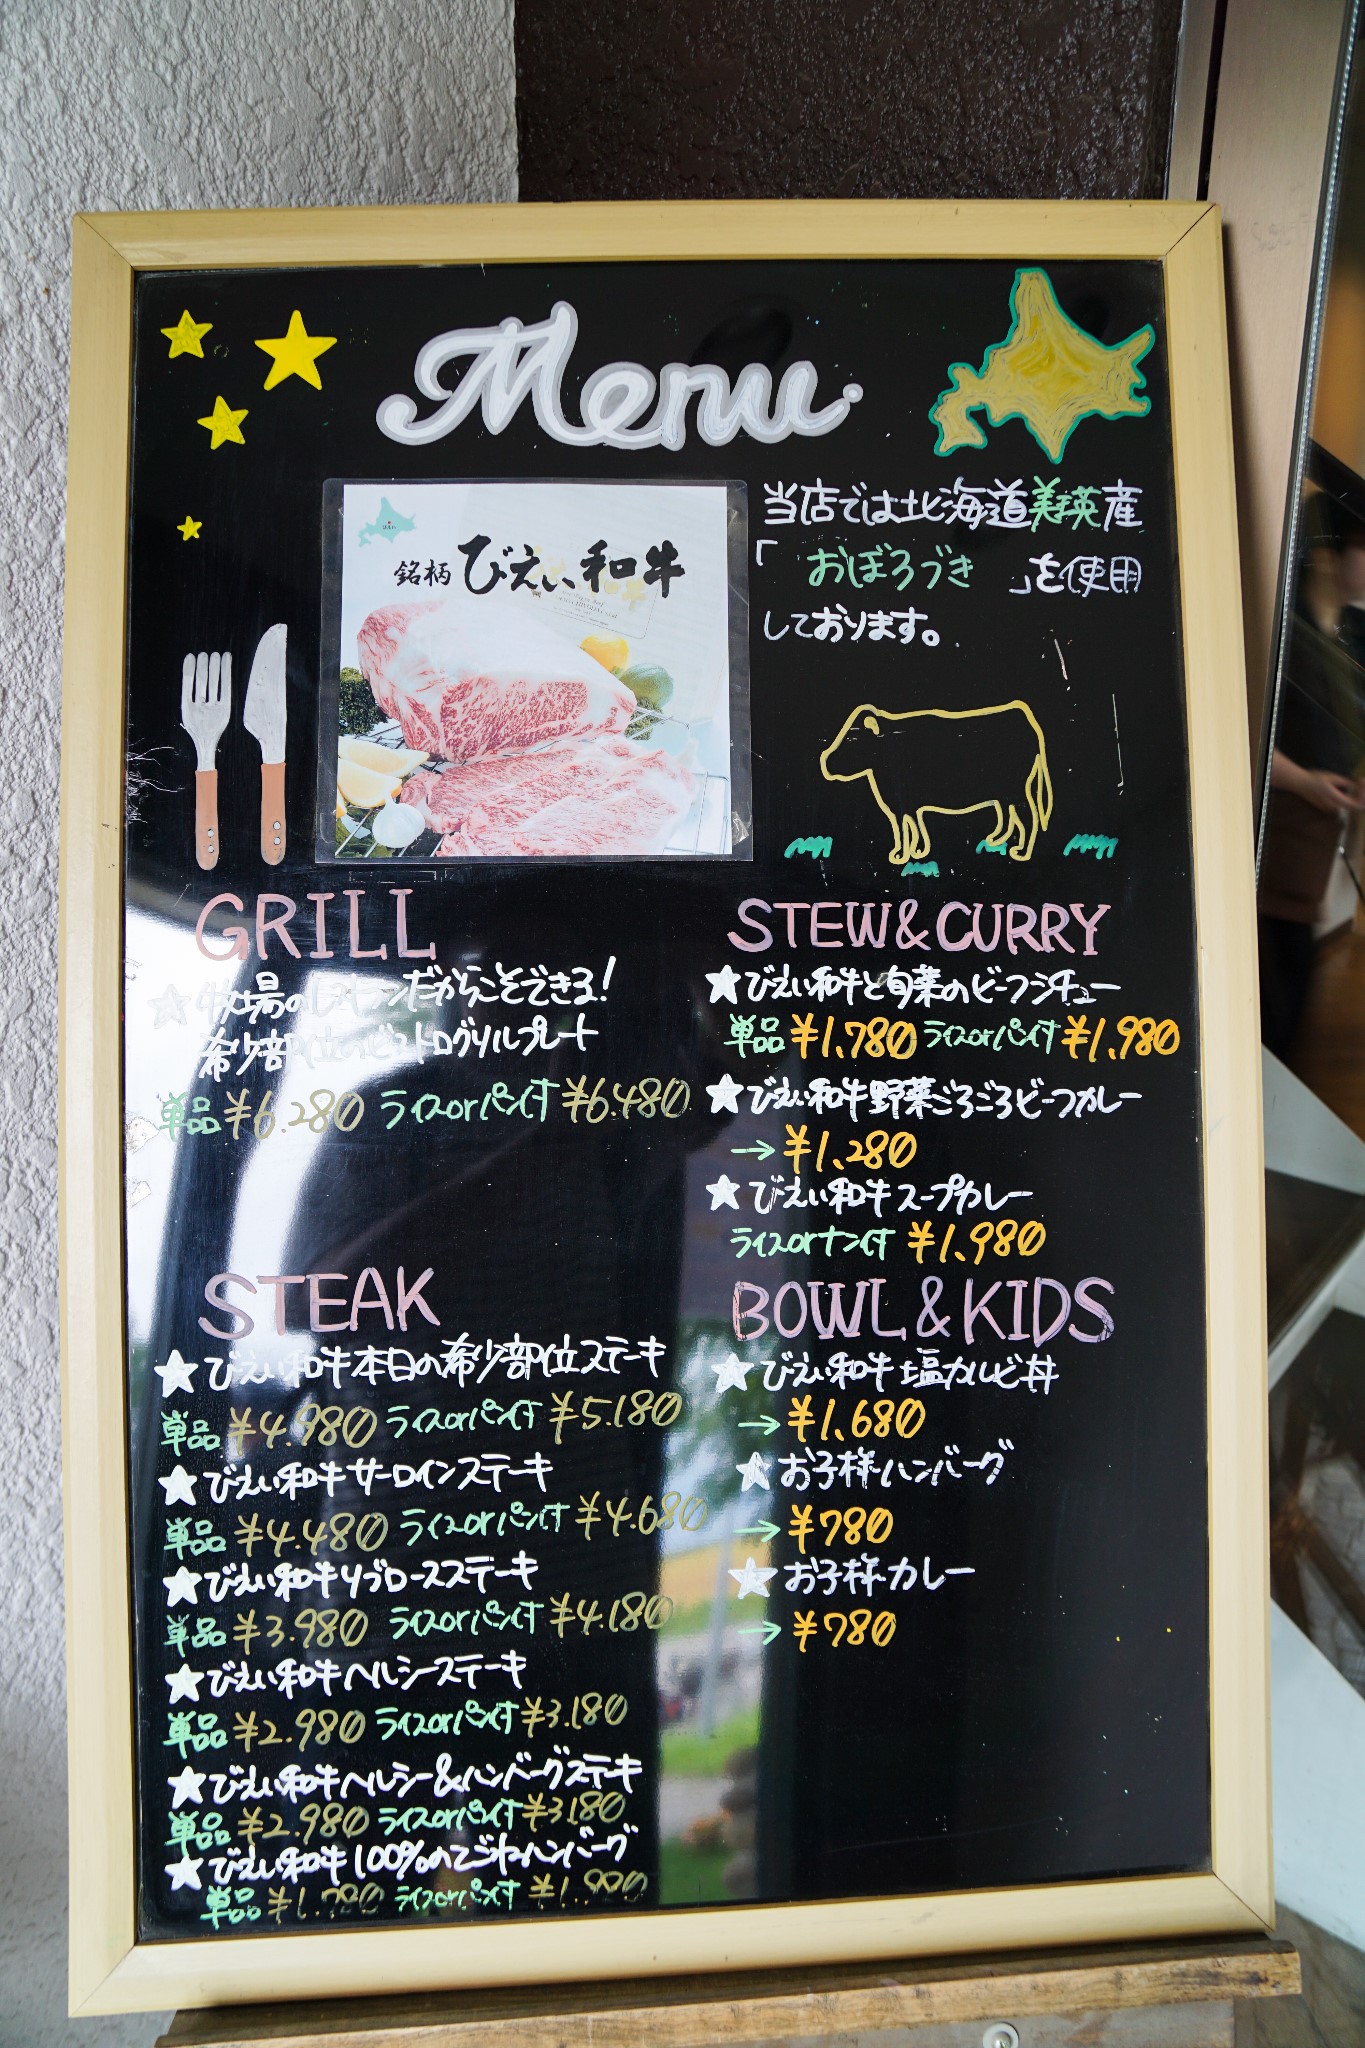 Menu
びえい
銘柄 びえい和牛
当店では北海道美瑛産
「おぼろづき」を使用
しております。
GRILL
★牧場のレストランだからこそできる!
希少部位のビストログリルプレート
単品 ¥6.280 ライスorパン付 ¥6.480
STEAK
★びえい和牛本日の希少部位ステーキ
単品 ¥4.980 ライスorパン付 ¥5.180
★びえい和牛サーロインステーキ
単品 ¥4.480 ライスorパン付 ¥4.680
★びえい和牛リブロースステーキ
単品 ¥3.980 ライスorパン付 ¥4.180
★びえい和牛ヘルシーステーキ
単品 ¥2.980 ライスorパン付 ¥3.180
★びえい和牛ヘルシー&ハンバーグステーキ
単品 ¥2.980 ライスorパン付 ¥3.180
★びえい和牛100%のてごねハンバーグ
単品 ¥1.780 ライスorパン付
STEW&CURRY
★びえい和牛と旬菜のビーフシチュー
単品 ¥1,780 ライスorパン付 ¥1,980
★びえい和牛野菜ごろごろビーフカレー
→ ¥1,280
★びえい和牛スープカレー
ライスorナン付 ¥1,980
BOWL&KIDS
★びえい和牛塩カルビ丼
→ ¥1,680
★お子様ハンバーグ
→ ¥780
★お子様カレー
→ ¥780